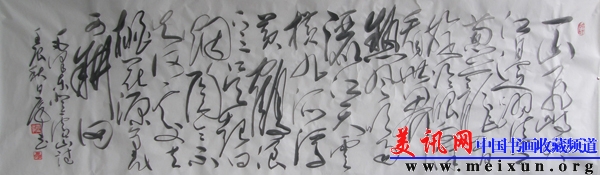 一山飞峙大
江边跃上
葱茏四百
旋冷眼向
洋看世界
热风吹雨
洒江天云
横九派浮
黄鹤浪
下三吴起白
烟陶令不
知何处去
桃花源里
可耕田
毛泽东登庐山诗
壬辰秋日
美讯网
中国书画收藏频道
www.meixun.org